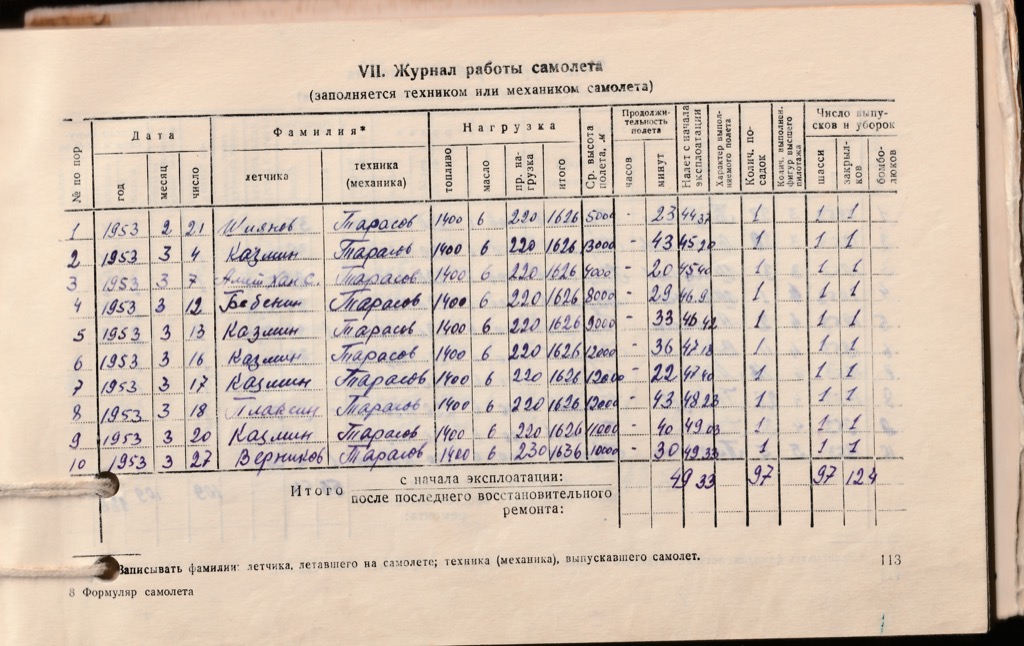 VII. Журнал работы самолета
(заполняется техником или механиком самолета)
№ по пор Дата Фамилия* Нагрузка Ср. высота полета, м Продолжительность полета Налет с начала эксплоатации Характер выполняемого полета Колич. посадок Колич. выполнен. фигур высшего пилотажа Число выпусков и уборок
год месяц число летчика техника (механика) топливо масло пр. нагрузка итого часов минут шасси закрылков бомболюков
1 1953 2 21 Тарасов 1400 6 220 1626 5000 - 23 44 37 1 1 1
2 1953 3 4 Казмин Тарасов 1400 6 220 1626 13000 - 43 45 20 1 1 1
3 1953 3 7 Амет Хан С. Тарасов 1400 6 220 1626 4000 - 20 45 40 1 1 1
4 1953 3 12 Бабенин Тарасов 1400 6 220 1626 8000 - 29 46 9 1 1 1
5 1953 3 13 Казмин Тарасов 1400 6 220 1626 9000 - 33 46 42 1 1 1
6 1953 3 16 Казмин Тарасов 1400 6 220 1626 12000 - 36 47 18 1 1 1
7 1953 3 17 Казмин Тарасов 1400 6 220 1626 12000 - 22 47 40 1 1 1
8 1953 3 18 Плаксин Тарасов 1400 6 220 1626 12000 - 43 48 23 1 1 1
9 1953 3 20 Казмин Тарасов 1400 6 220 1626 11000 - 40 49 03 1 1 1
10 1953 3 27 Верников Тарасов 1400 6 230 1636 1000 - 30 49 33 1 1 1
Итого с начала эксплоатации: 49 33 97 97 124
после последнего восстановительного ремонта:
Записывать фамилии: летчика, летавшего на самолете; техника (механика), выпускавшего самолет.
113
8 Формуляр самолета